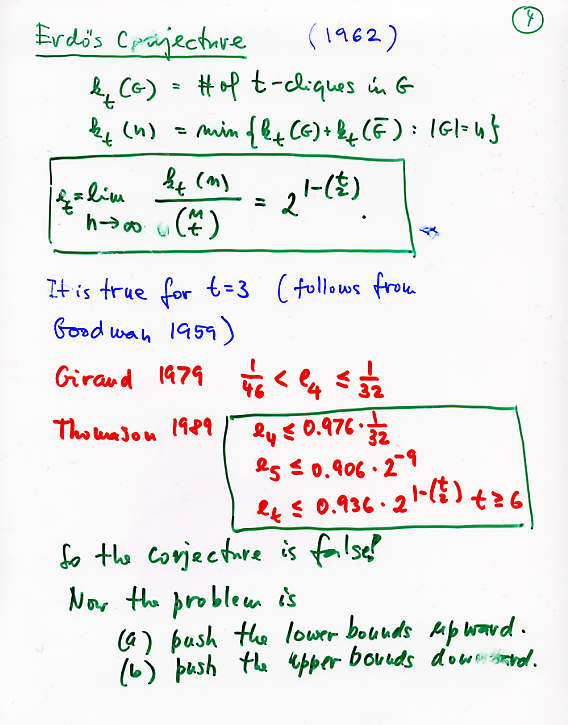 4
Erdő's Conjecture (1962)
k_t(G) = # of t-cliques in G
k_t(n) = min {k_t(G) + k_t(G̅) : |G|=n}
e_t = lim_{n→∞} k_t(n) / (n choose t) = 2^{1-(t choose 2)}.
It is true for t=3 (follows from
Goodman 1959)
Giraud 1979 1/46 < e_4 ≤ 1/32
Thomason 1989 e_4 ≤ 0.976 · 1/32
e_5 ≤ 0.906 · 2^{-9}
e_t ≤ 0.936 · 2^{1-(t choose 2)} t ≥ 6
So the conjecture is false!
Now the problem is
(a) push the lower bounds upward.
(b) push the upper bounds downward.